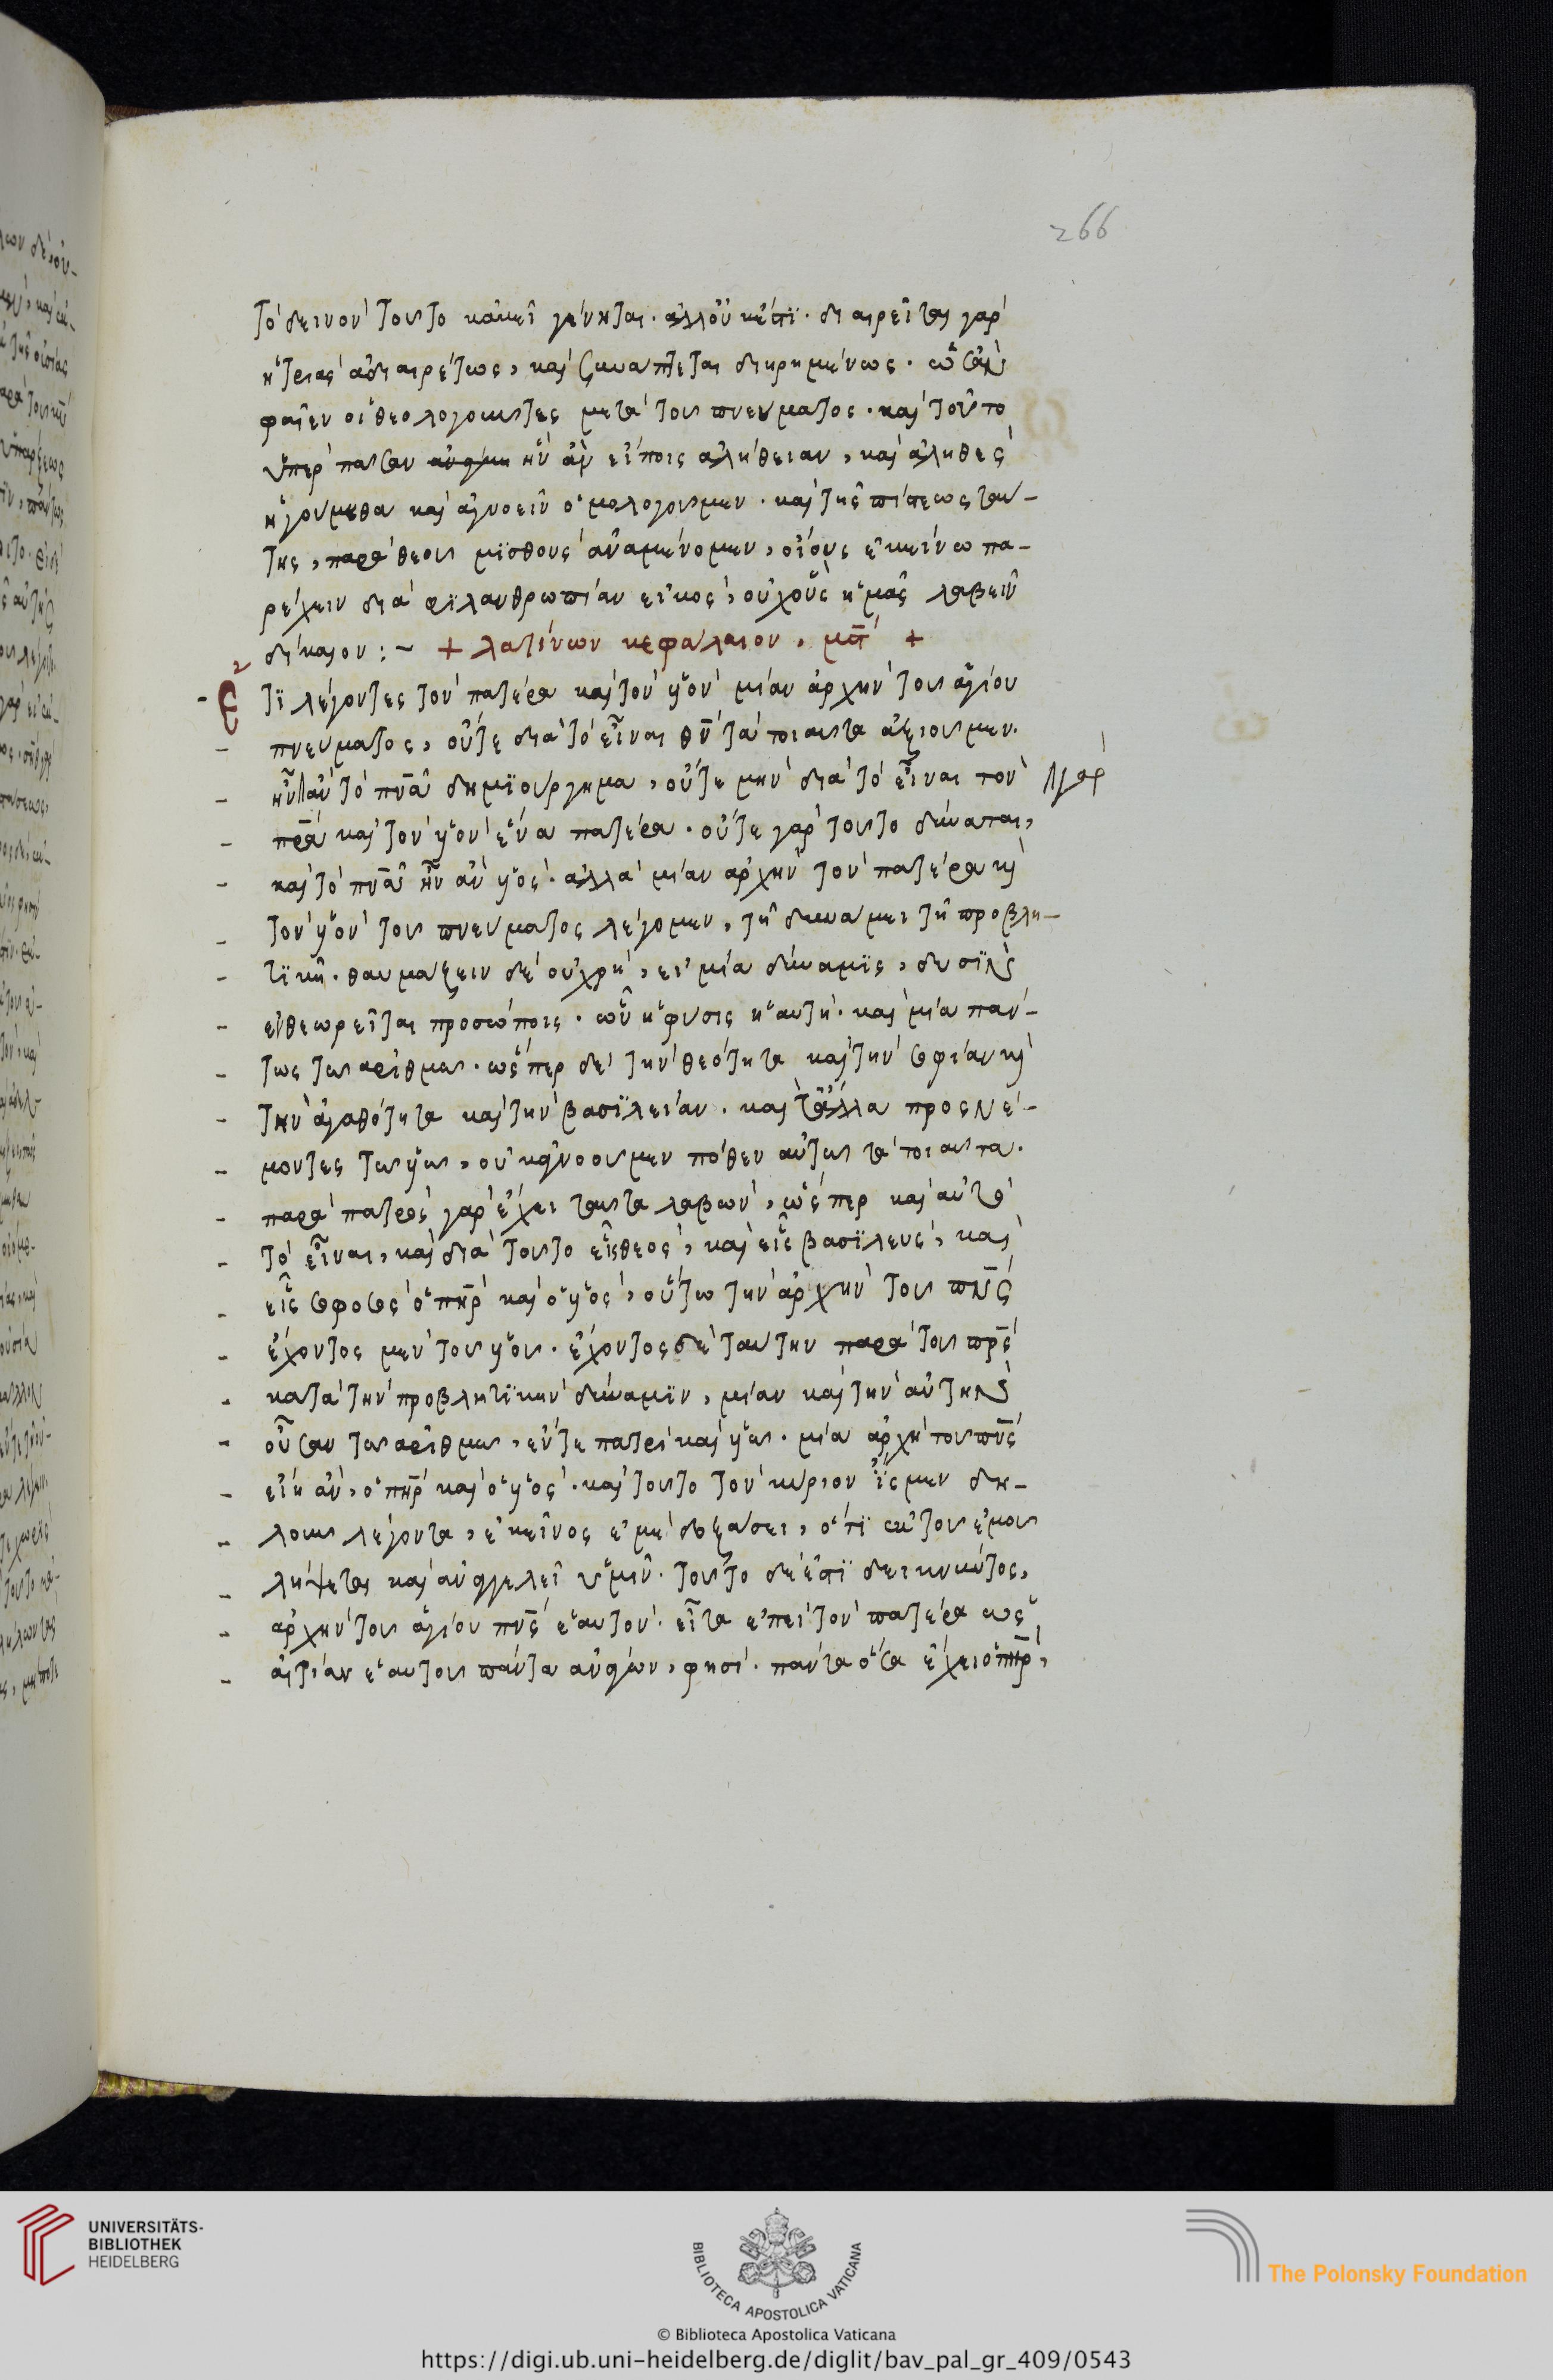 266
τὸ δεινὸν τοῦτο κἀκεῖ γένηται. ἀλλ' οὐκ ἔστι. διαιρεῖται γὰρ
ἡ τριὰς ἀδιαιρέτως, καὶ συνάπτεται διῃρημένως. ὡς ἂν
φαῖεν οἱ θεολογοῦντες μετὰ τοῦ πνεύματος. καὶ τοῦτο
ὑπὲρ πᾶσαν ἣν ἂν εἴποις ἀλήθειαν, καὶ ἀληθὲς
ἡγούμεθα καὶ ἀγνοεῖν ὁμολογοῦμεν. καὶ τῆς πίστεως ταύ-
της, παρὰ θεοῦ μισθοὺς ἀναμένομεν, οἵους ἐκείνω πα-
ρέχειν διὰ φιλανθρωπίαν εἰκὸς, οὐχ οὓς ἡμᾶς λαβεῖν
δίκαιον :~ + λατίνων κεφάλαιον. +
Ἔτι λέγοντες τὸν πατέρα καὶ τὸν υἱὸν μίαν ἀρχὴν τοῦ ἁγίου
πνεύματος, οὔτε διὰ τὸ εἶναι θν τὰ τοιαῦτα ἀξιοῦμεν.
ἦν ἂν τὸ πνα δημιούργημα, οὔτε μὴν διὰ τὸ εἶναι τὸν
γὰρ
πρα καὶ τὸν υἱὸν ἕνα πατέρα. οὔτε γὰρ τοῦτο δύναται,
καὶ τὸ πνα ἦν ἂν υἱός. ἀλλὰ μίαν ἀρχὴν τὸν πατέρα καὶ
τὸν υἱὸν τοῦ πνεύματος λέγομεν, τῇ δυνάμει τῇ προβλη-
τικῇ. θαυμάζειν δὲ οὐ χρὴ, εἰ μία δύναμις, δυσὶν
ἐνθεωρεῖται προσώποις. ὧν ἡ φύσις ἡ αὐτὴ. καὶ μία πάν-
τως τῶ ἀριθμῶ. ὥσπερ δὲ τὴν θεότητα καὶ τὴν σοφίαν καὶ
τὴν ἀγαθότητα καὶ τὴν βασιλείαν. καὶ τἄλλα προσνέ-
μοντες τῶ υἱῶ, οὐκ ἀγνοοῦμεν πόθεν αὐτῶ τὰ τοιαῦτα.
παρὰ πατρὸς γὰρ ἔχει ταῦτα λαβὼν, ὥσπερ καὶ αὐτὸ
τὸ εἶναι, καὶ διὰ τοῦτο εἷς θεὸς, καὶ εἷς βασιλεὺς, καὶ
εἷς σοφὸς ὁ πηρ καὶ ὁ υἱὸς, οὕτω τὴν ἀρχὴν τοῦ πνς
ἔχοντος μὲν τοῦ υἱοῦ. ἔχοντος δὲ ταύτην παρὰ τοῦ πρς
κατὰ τὴν προβλητικὴν δύναμιν, μίαν καὶ τὴν αὐτὴν
οὖσαν τῶ ἀριθμῶ, ἔν τε πατρὶ καὶ υἱῶ. μία ἀρχὴ τοῦ πνς
εἴη ἂν, ὁ πηρ καὶ ὁ υἱός. καὶ τοῦτο τὸν κύριον ἴσμεν δη-
λοῦν λέγοντα, ἐκεῖνος ἐμὲ δοξάσει, ὅτι ἐκ τοῦ ἐμοῦ
λήψεται καὶ ἀναγγελεῖ ὑμῖν. τοῦτο δέ ἐστι δεικνύντος,
ἀρχὴν τοῦ ἁγίου πνς ἑαυτὸν. εἶτα ἐπεὶ τὸν πατέρα ὡς
αἰτίαν ἑαυτοῦ πάντα ἀνάγων, φησί. πάντα ὅσα ἔχει ὁ πηρ,
UNIVERSITÄTS-
BIBLIOTHEK
HEIDELBERG
BIBLIOTECA APOSTOLICA VATICANA
The Polonsky Foundation
© Biblioteca Apostolica Vaticana
https://digi.ub.uni-heidelberg.de/diglit/bav_pal_gr_409/0543